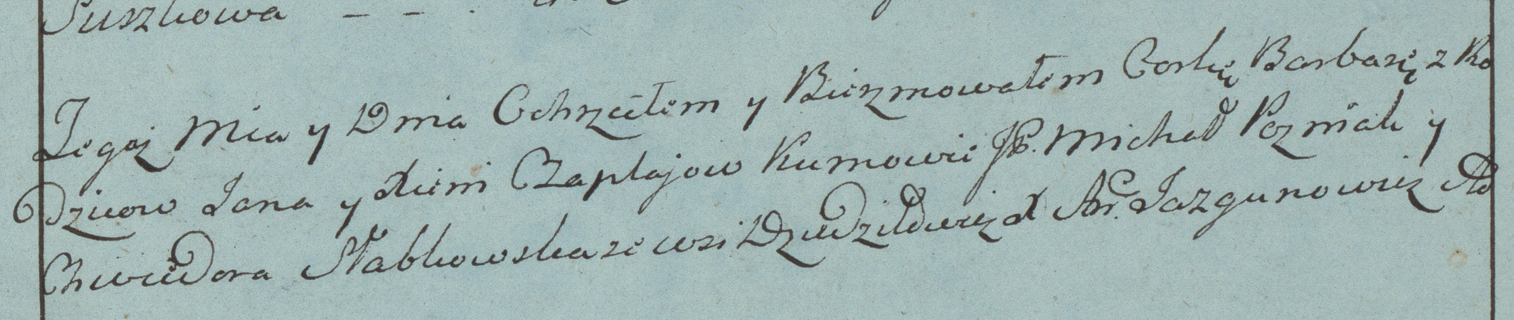 Suszkowa - - .
Tegoż Mia y Dnia Ochrzciłem y Bierzmowałem Corkę Barbarę z Ro
Dzicow Jana y Xieni Czaplajow Kumowie JP. Michał Pozniak y
Chwiedora Słabkowska ze wsi Dziedziłowicz X Ar. Jazgunowicz